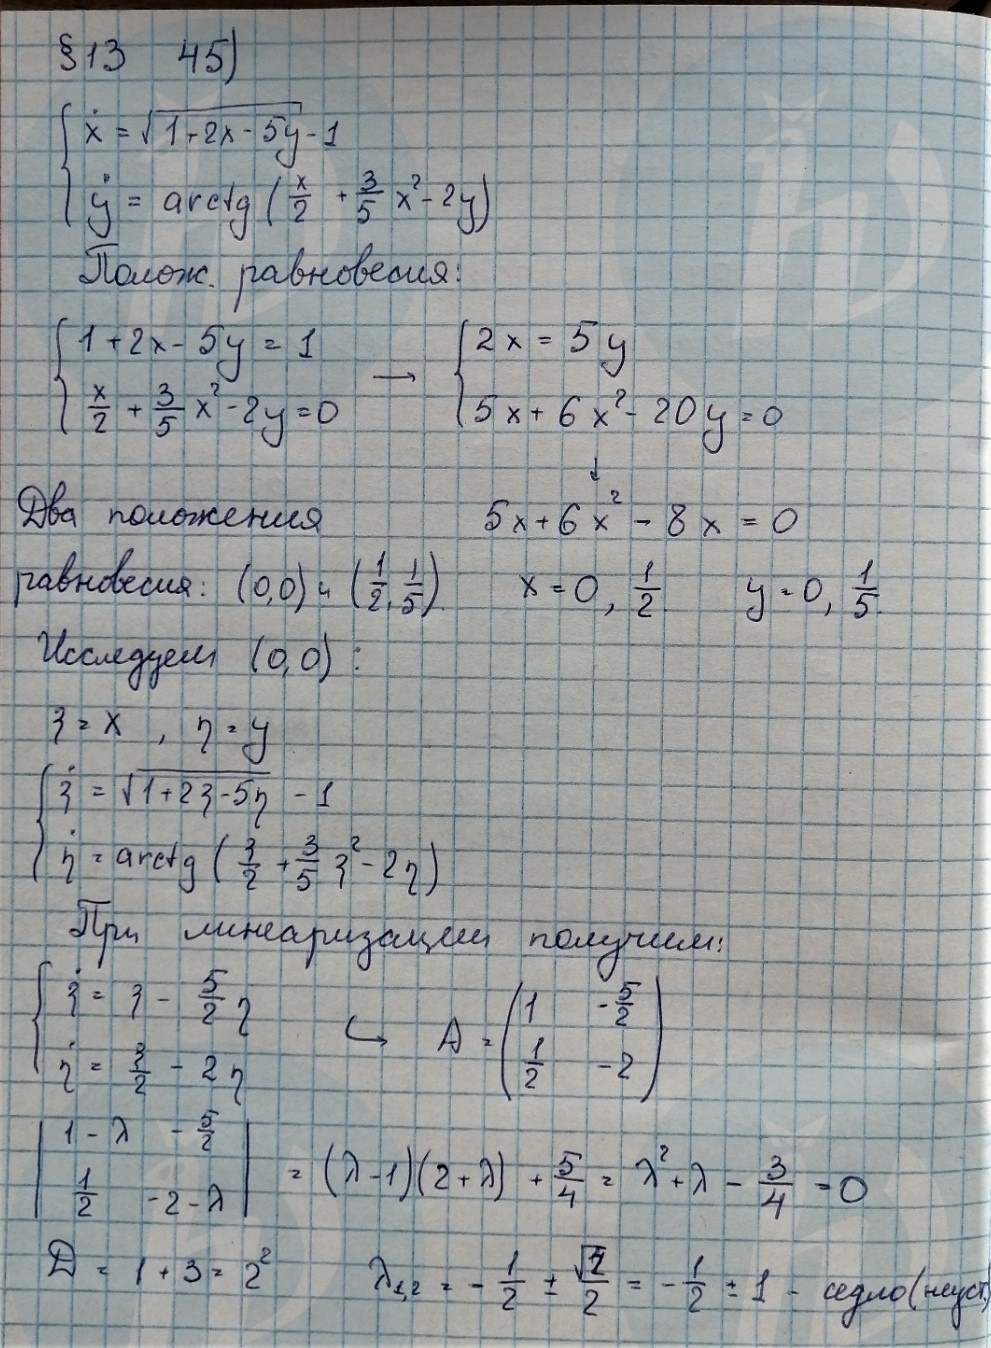 §13 45)
{ ẋ = √(1+2x-5y) - 1
{ ẏ = arctg (x/2 + 3/5 x² - 2y)
Полож. равновесия:
{ 1+2x-5y = 1 → { 2x = 5y
{ x/2 + 3/5 x² - 2y = 0 { 5x + 6x² - 20y = 0
↓
Два положения 5x + 6x² - 8x = 0
равновесия: (0,0) и (1/2, 1/5). x = 0, 1/2. y = 0, 1/5.
Исследуем (0,0):
ξ = x, η = y
{ ξ̇ = √(1+2ξ-5η) - 1
{ η̇ = arctg (ξ/2 + 3/5 ξ² - 2η)
При линеаризации получим:
{ ξ̇ = ξ - 5/2 η ↪ A = (1 -5/2
{ η̇ = ξ/2 - 2η 1/2 -2)
|1-λ -5/2|
|1/2 -2-λ| = (λ-1)(2+λ) + 5/4 = λ² + λ - 3/4 = 0
D = 1 + 3 = 2² λ₁,₂ = -1/2 ± √4/2 = -1/2 ± 1 - седло (неуст)